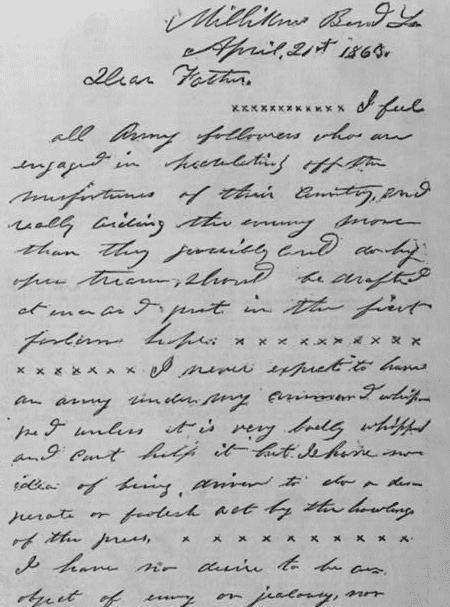 Millikins Bend La
April, 21st 1863.
Dear Father.
x x x x x x x x x x x x I feel
all Army followers who are
engaged in speculating off the
misfortunes of their Country, and
really aiding the enemy more
than they possibly could do by
open treason, should be drafted
at once and put in the first
forlorn hope. x x x x x x x x x x
x x x x x x x. I never expect to have
an army under my command whip-
ped unless it is very badly whipped
and cant help it but I have no
idea of being driven to do a des-
perate or foolish act by the howlings
of the press. x x x x x x x x x x
I have no desire to be an
object of envy or jealousy, nor